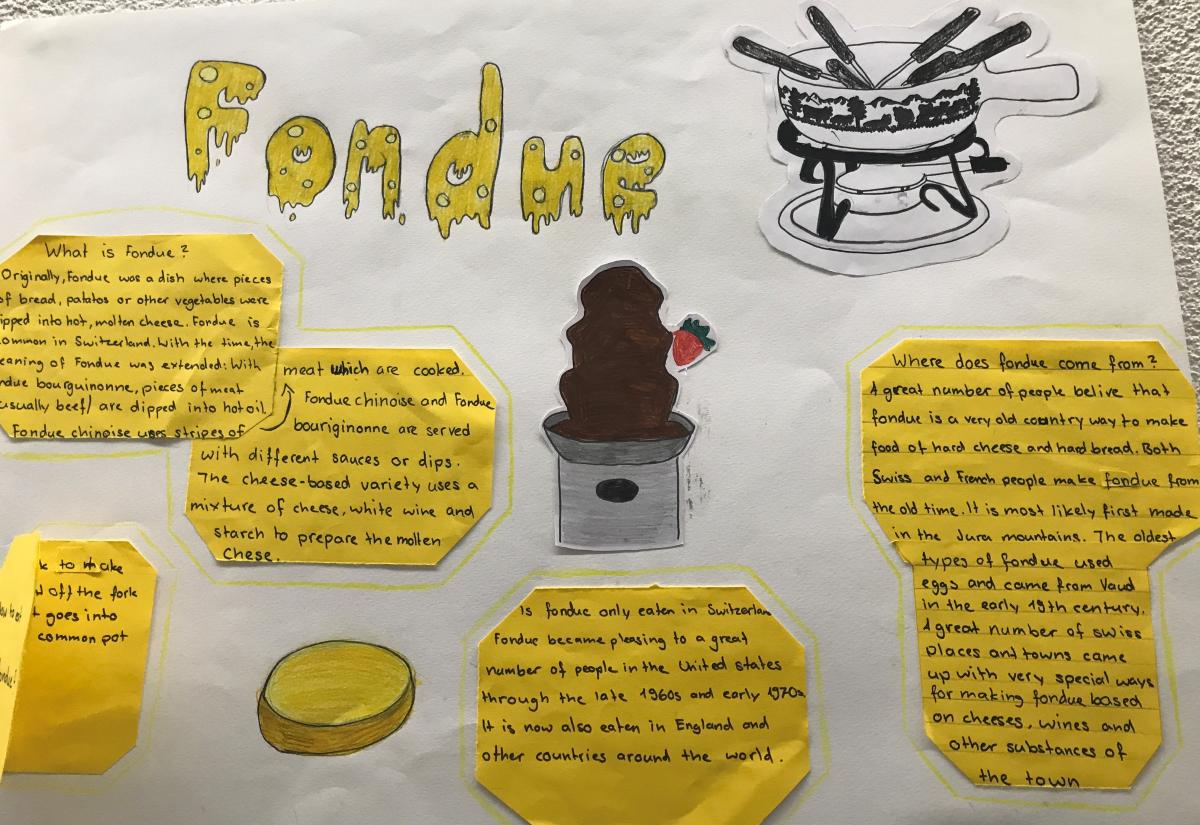 Fondue
What is Fondue?
Originally, Fondue was a dish where pieces
of bread, patatos or other vegetables were
ipped into hot, molten cheese. Fondue is
ommon in Switzerland. With the time, the
eaning of Fondue was extended: With
ndue bourguinonne, pieces of meat
usually beef/ are dipped into hot oil.
Fondue chinoise uses stripes of
meat which are cooked.
Fondue chinoise and Fondue
bouriginonne are served
with different sauces or dips.
The cheese-based variety uses a
mixture of cheese, white wine and
starch to prepare the molten
Chese.
k to make
d off the fork
t goes into
common pot
Is fondue only eaten in Switzerlan
Fondue became pleasing to a great
number of people in the United states
through the late 1960s and early 1970s.
It is now also eaten in England and
other countries around the world.
Where does fondue come from?
A great number of people belive that
fondue is a very old country way to make
food of hard cheese and hard bread. Both
Swiss and French people make fondue from
the old time. It is most likely first made
in the Jura mountains. The oldest
types of fondue used
eggs and came from Vaud
in the early 19th century.
A great number of swiss
places and towns came
up with very special ways
for making fondue based
on cheeses, wines and
other substances of
the town